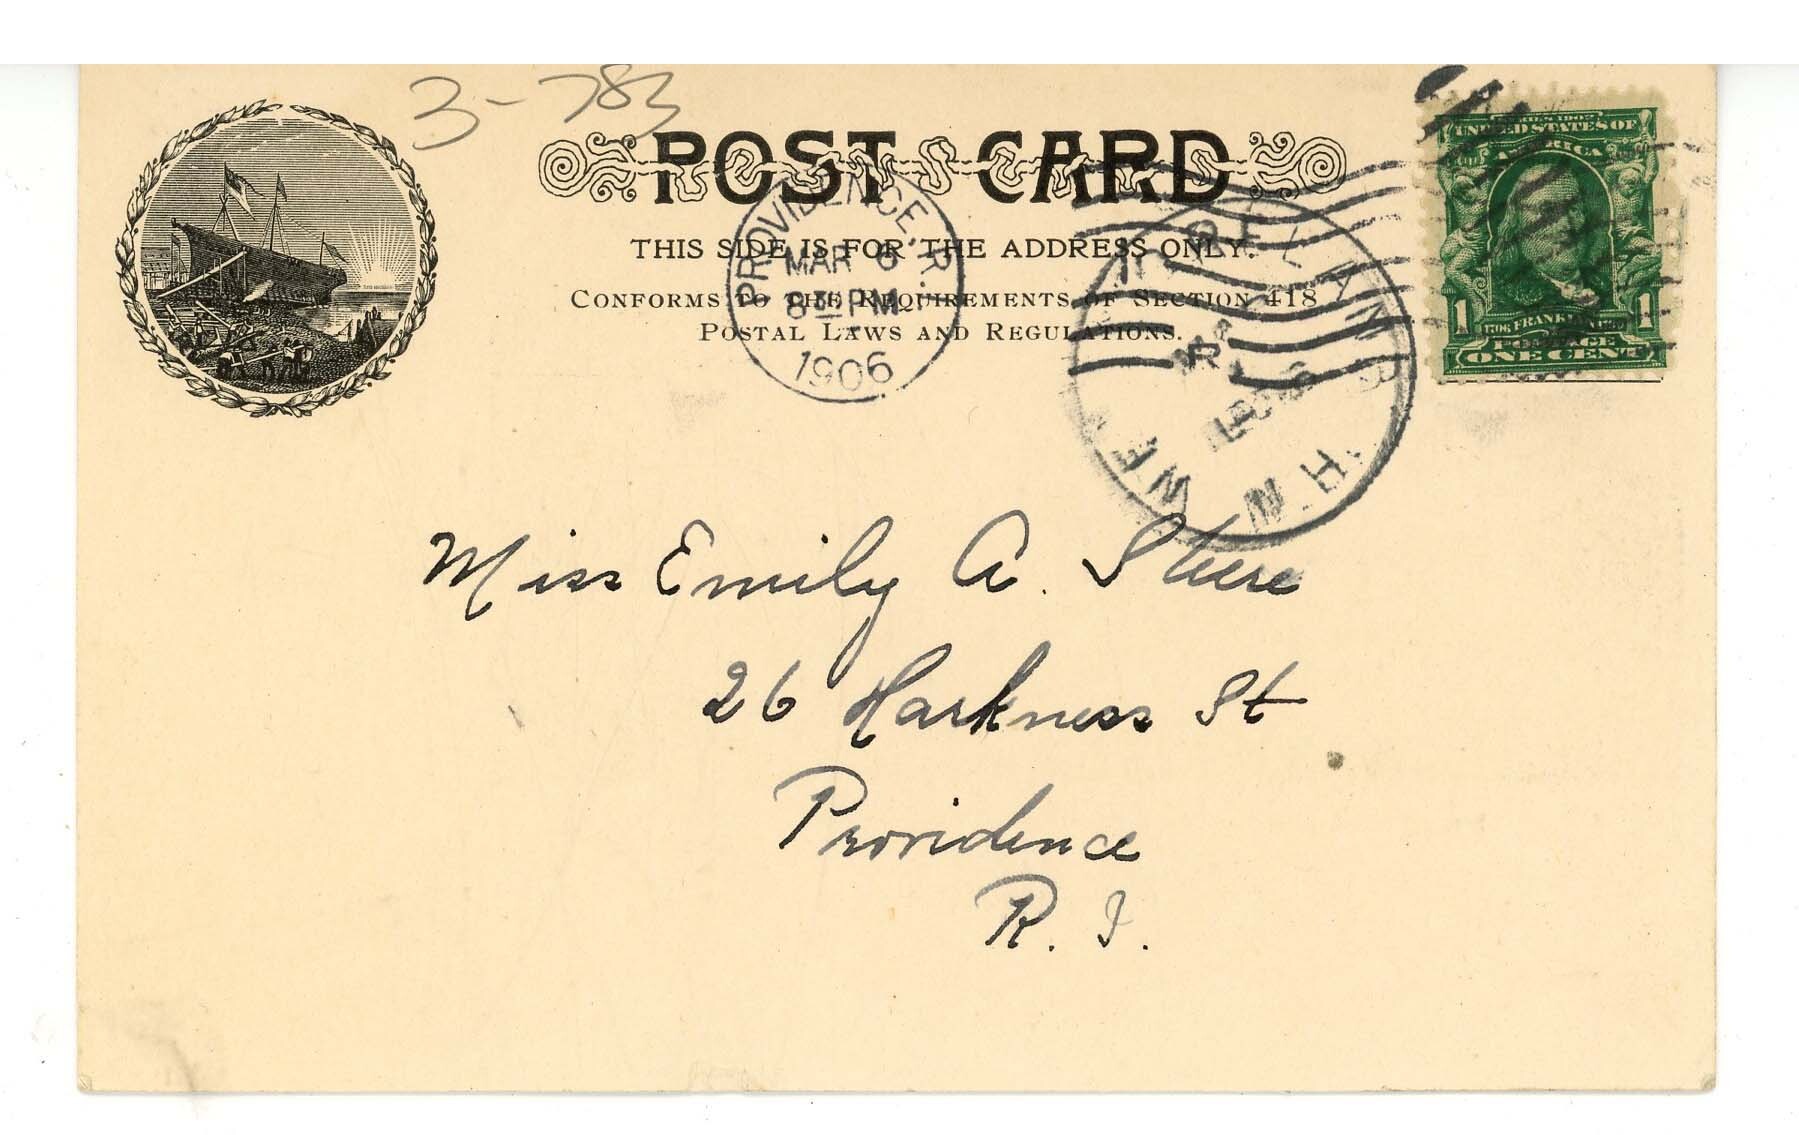 3-783
POST CARD
THIS SIDE IS FOR THE ADDRESS ONLY.
CONFORMS TO THE REQUIREMENTS OF SECTION 418
POSTAL LAWS AND REGULATIONS.
PROVIDENCE, R.I.
MAR 6
8 30 PM
1906
N.H.
UNITED STATES OF
AMERICA
1 1
POSTAGE
ONE CENT
Miss Emily A. Steere
26 Harkness St
Providence
R. I.